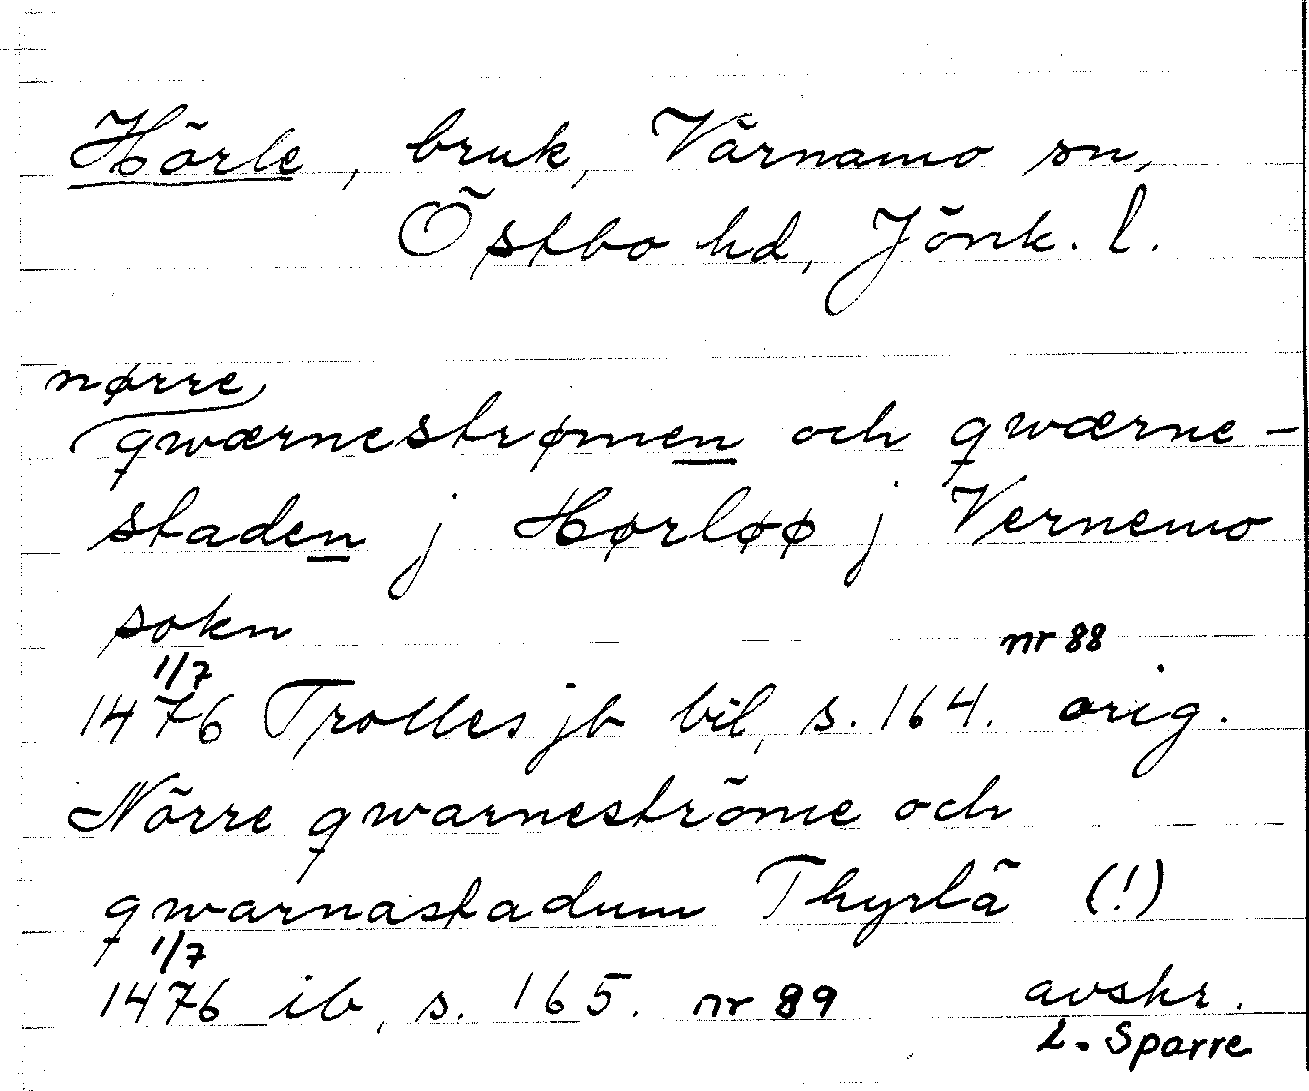 Hörle, bruk, Värnamo sn,
Östbo hd, Jönk. l.
nørre
qwærnestrømen och qwærne-
staden j Hørløø j Vernemo
sokn
nr 88
1/7
1476 Trolles jb bil, s. 164. orig.
Nörre qwarneströme och
qwarnastadum Thyrlä (!)
1/7
1476 ib, s. 165. nr 89 avskr.
L. Sparre